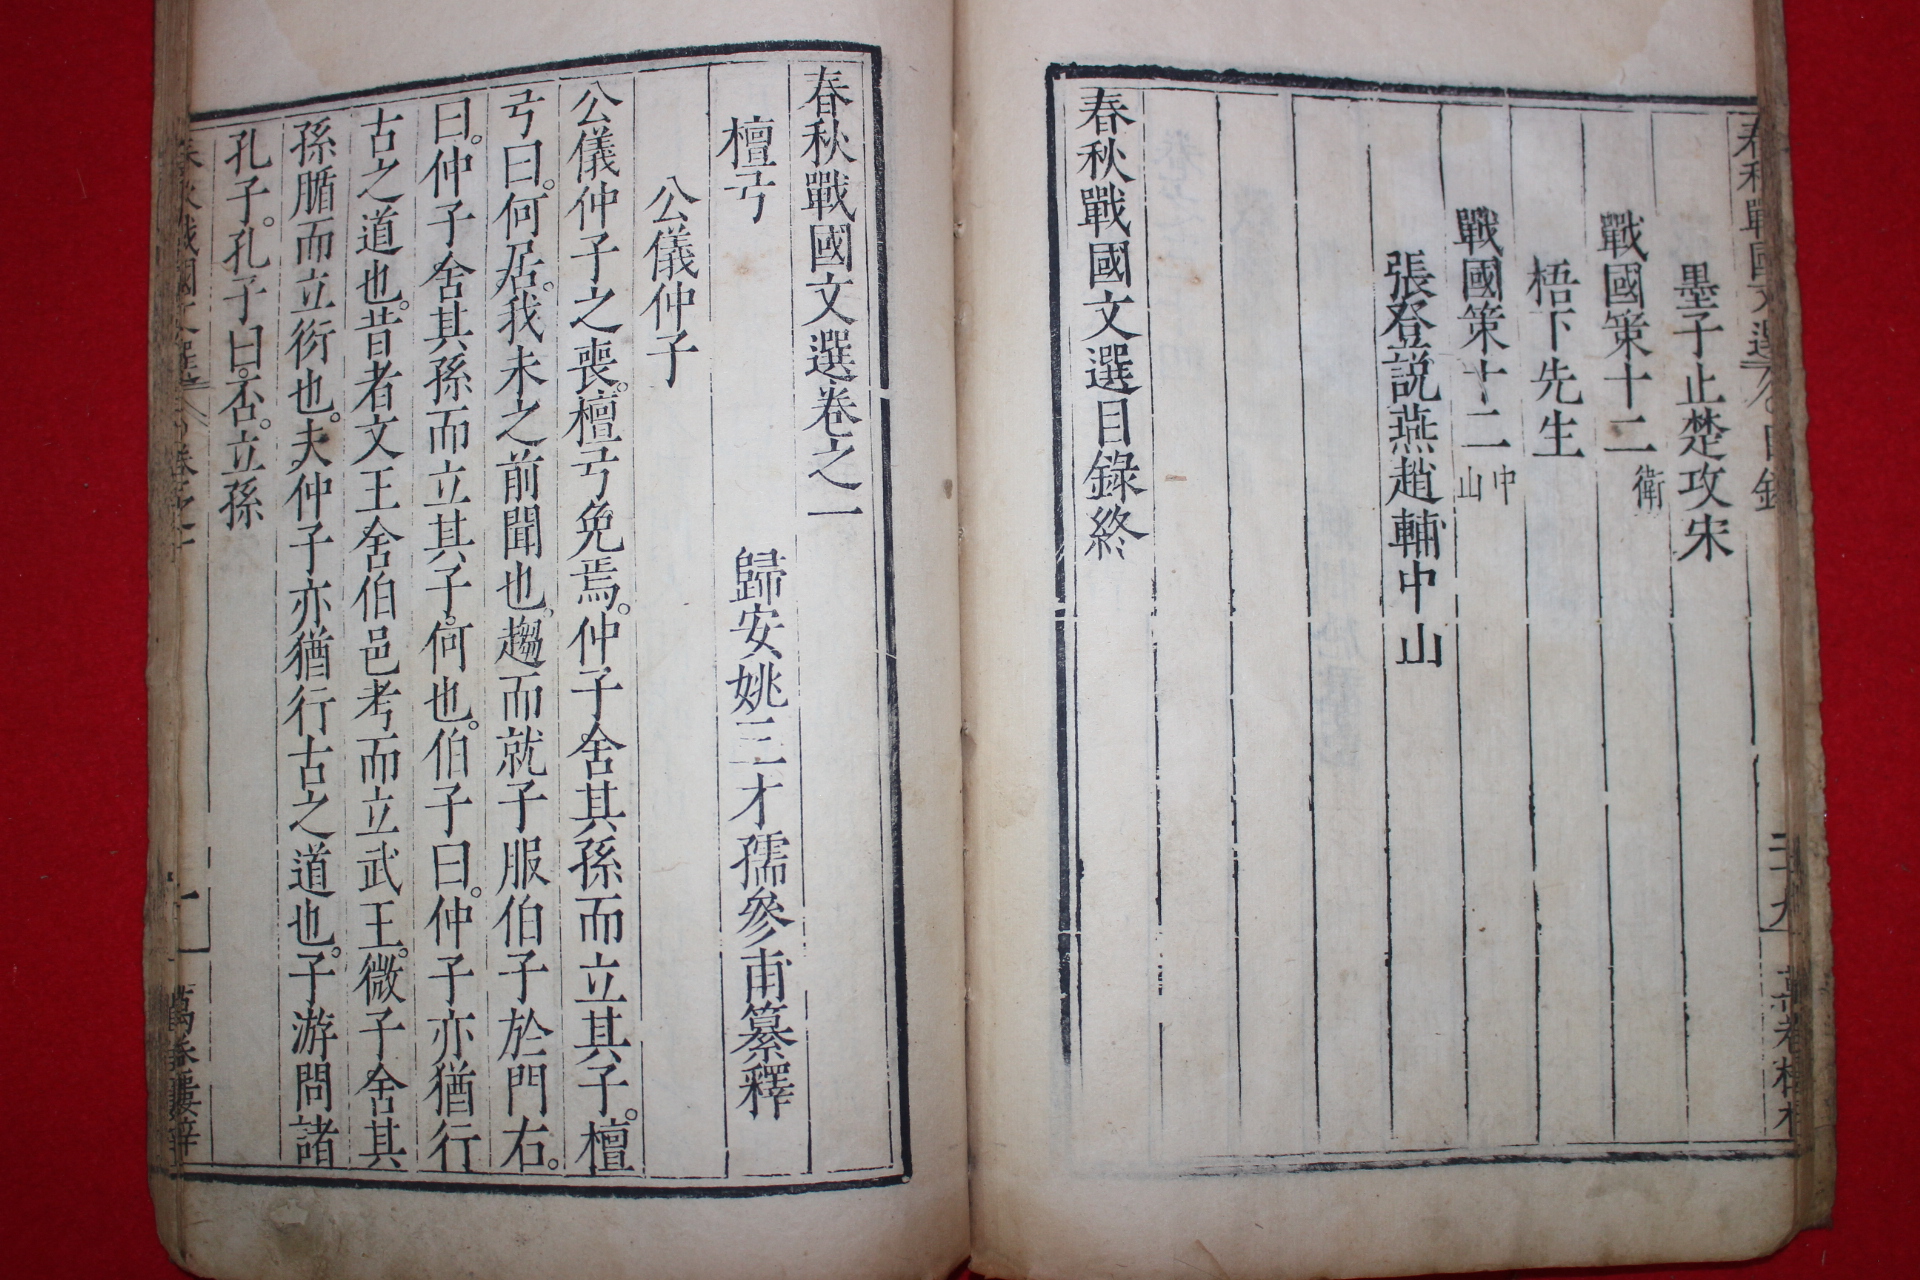 墨子止楚攻宋
戰國策十二 衛
梧下先生
戰國策十二 中山
張登説燕趙輔中山
春秋戰國文選目錄終
春秋戰國文選卷之一
檀弓 歸安姚三才孺參甫纂釋
公儀仲子
公儀仲子之喪。檀弓免焉。仲子舍其孫而立其子。檀
弓曰。何居。我未之前聞也。趨而就子服伯子於門右。
曰。仲子舍其孫而立其子。何也。伯子曰。仲子亦猶行
古之道也。昔者文王舍伯邑考而立武王。微子舍其
孫腯而立衍也。夫仲子亦猶行古之道也。子游問諸
孔子。孔子曰。否。立孫